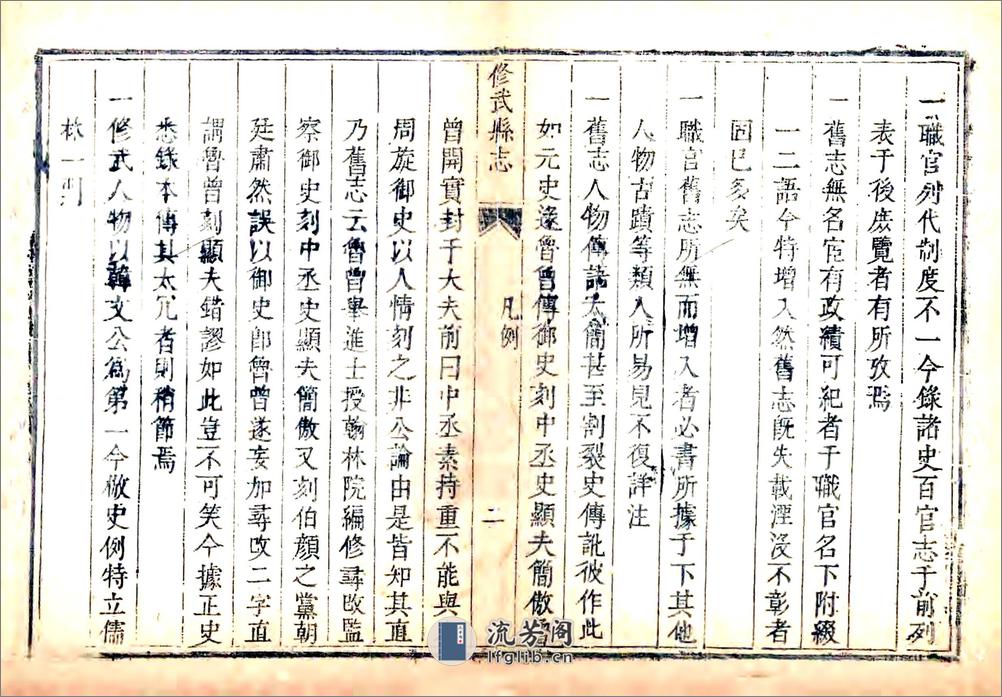 一職官列代制度不一今錄諸史百官志于前列
表于後庶覽者有所攷焉
一舊志無名宦有政績可紀者于職官名下附綴
一二語今特增入然舊志旣失載湮沒不彰者
固已多矣
一職官舊志所無而增入者必書所據于下其他
人物古蹟等類人所易見不復詳注
一舊志人物傳諸太簡甚至割裂史傳訛彼作此
如元史逯魯曾傳御史刻中丞史顯夫簡傲
修武縣志
凡例
二
曾開實封于大夫前曰中丞素持重不能與
周旋御史以人情刻之非公論由是皆知其直
乃舊志云魯曾舉進士授翰林院編修尋改監
察御史刻中丞史顯夫簡傲又刻伯顏之黨朝
廷肅然誤以御史卽魯曾遂妄加尋改二字直
謂魯曾刻顯夫錯謬如此豈不可笑今據正史
悉錄本傳其太冗者則稍節焉
一修武人物以韓文公爲第一今倣史例特立儒
林一門
流芳阁
lfglib.cn